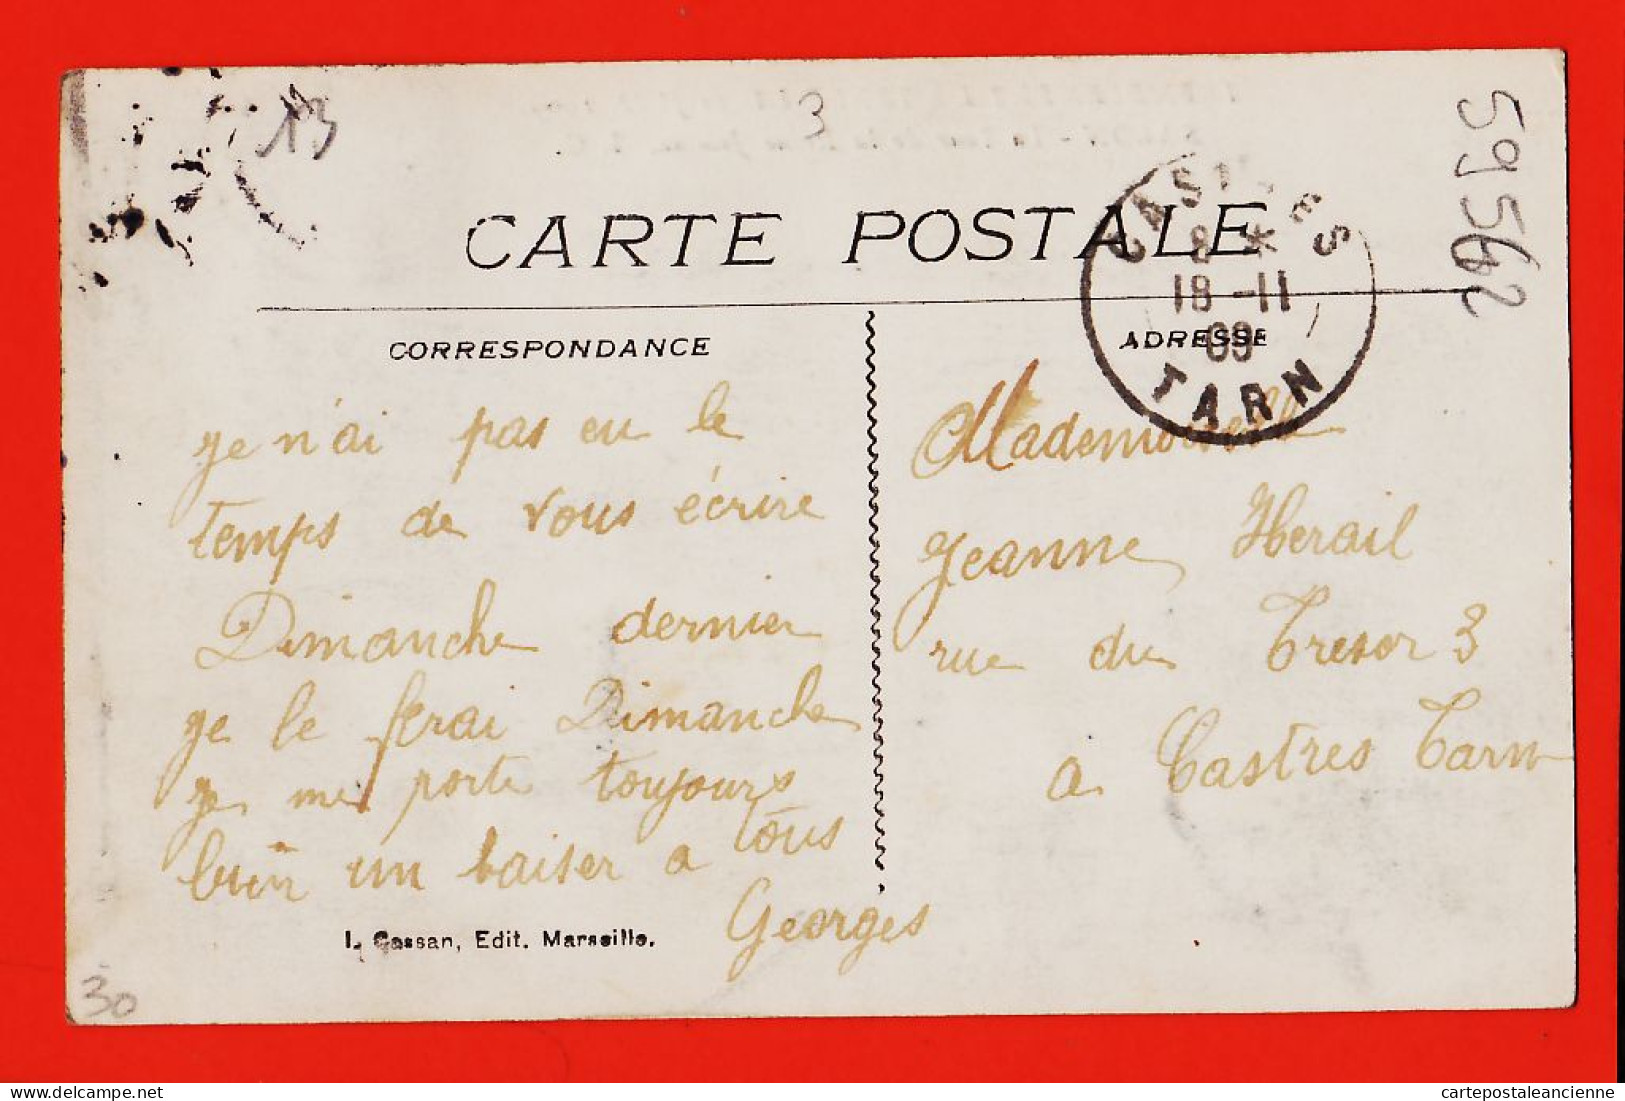 13
3
59562
CARTE POSTALE
CASTRES
8 *
18 -11
09
TARN
CORRESPONDANCE
je n'ai pas eu le
temps de vous écrire
Dimanche dernier
je le ferai Dimanche
je me porte toujours
bien un baiser a tous
Georges
L. Gassan, Edit. Marseille.
30
ADRESSE
Mademoiselle
Jeanne Herail
rue du Tresor 3
a Castres Tarn
cartepostaleancienne